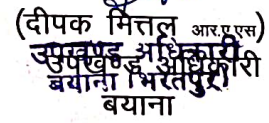 (दीपक मित्तल आर.ए.एस)
उपखण्ड अधिकारी
उपखण्ड अधिकारी
बयाना (भरतपुर)
बयाना